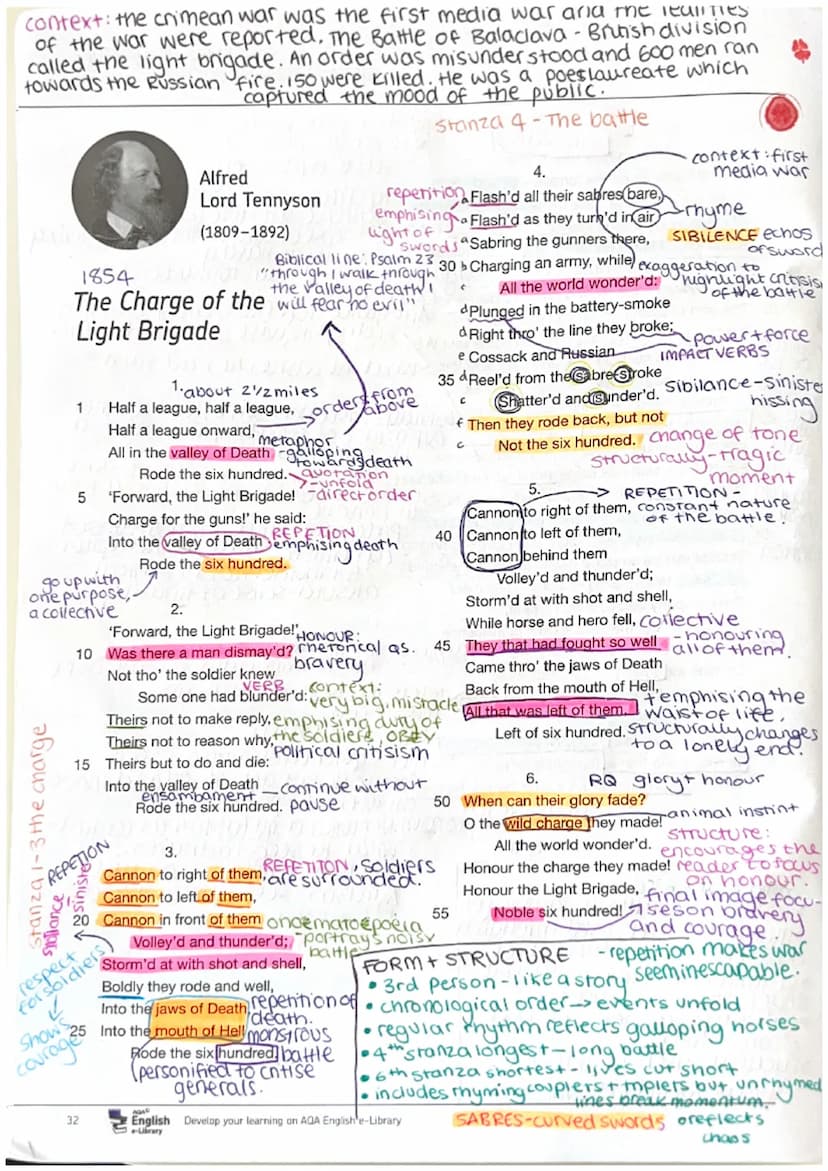 context: the crimean war was the first media war and the realities
of the war were reported. The Battle of Balaclava - British division
called the light brigade. An order was misunderstood and 600 men ran
towards the Russian fire. 150 were killed. He was a poet laureate which
captured the mood of the public.
Alfred
Lord Tennyson
(1809–1892)
1854
The Charge of the
Light Brigade
Biblical line: Psalm 23
"through I walk through
the valley of death I
will fear no evil"
1. about 2½ miles
1 Half a league, half a league,
orders from
above
Half a league onward,
metaphor
-galloping
towards death
All in the valley of Death
Rode the six hundred.
quotation
-unfold
5 ‘Forward, the Light Brigade!
-direct order
Charge for the guns!’ he said:
Into the valley of Death
REPETION
emphising death
Rode the six hundred.
go up with
one purpose,
a collective
2.
‘Forward, the Light Brigade!’
HONOUR:
10 Was there a man dismay’d?
rhetorical qs.
bravery
Not tho’ the soldier knew
VERB
Some one had blunder’d:
context:
very big, mistacle
Theirs not to make reply,
emphising duty of
the soldiers, OBEY
Theirs not to reason why,
political critisism
15 Theirs but to do and die:
Into the valley of Death
continue without
pause
Rode the six hundred.
stanza 1-3 the charge
3.
REPETION
sinister
Cannon to right of them,
REPETITON, soldiers
are surrounded.
Cannon to left of them,
20 Cannon in front of them
onoematoepoeia
portrays noisy
battle
Volley’d and thunder’d;
Storm’d at with shot and shell,
Boldly they rode and well,
respect
for soldiers
shows
courage
Into the jaws of Death,
repetition of
death.
25 Into the mouth of Hell
monstrous
battle
Rode the six hundred.
personified to critise
generals.
stanza 4 - The battle
4.
context: first
media war
repetition
emphising
light of
swords
a Flash’d all their sabres bare,
a Flash’d as they turn’d in air
rhyme
a Sabring the gunners there,
SIBILENCE echos
of sword
30 b Charging an army, while
exaggeration to
highlight critisis
of the battle
c All the world wonder’d:
d Plunged in the battery-smoke
d Right thro’ the line they broke;
power + force
IMPACT VERBS
e Cossack and Russian
35 d Reel’d from the sabre-stroke
Sibilance-siniste
hissing
c Shatter’d and sunder’d.
f Then they rode back, but not
c Not the six hundred.
change of tone
structurally-tragic
moment
5.
REPETITION -
constant nature
of the battle!
Cannon to right of them,
40 Cannon to left of them,
Cannon behind them
Volley’d and thunder’d;
Storm’d at with shot and shell,
While horse and hero fell,
collective
-honouring
all of them.
45 They that had fought so well
Came thro’ the jaws of Death
Back from the mouth of Hell,
All that was left of them,
+ emphising the
waist of life.
Left of six hundred.
structurally changes
to a lonely end.
6.
RQ glory + honour
50 When can their glory fade?
O the wild charge they made!
animal instint
All the world wonder’d.
STRUCTURE:
encourages the
reader to focus
on honour.
Honour the charge they made!
Honour the Light Brigade,
55 Noble six hundred!
final image focu-
seson bravery
and courage.
FORM + STRUCTURE
-repetition makes war
seem inescapable.
• 3rd person - like a story
• chronological order → events unfold
• regular rhythm reflects galloping horses
• 4th stanza longest - long battle
• 6th stanza shortest - lives cut short
• includes rhyming couplers + triplers but unrhymed
lines break momentum.
oreflects
chaos
SABRES-curved swords
32
AQA
English
e-Library
Develop your learning on AQA English e-Library